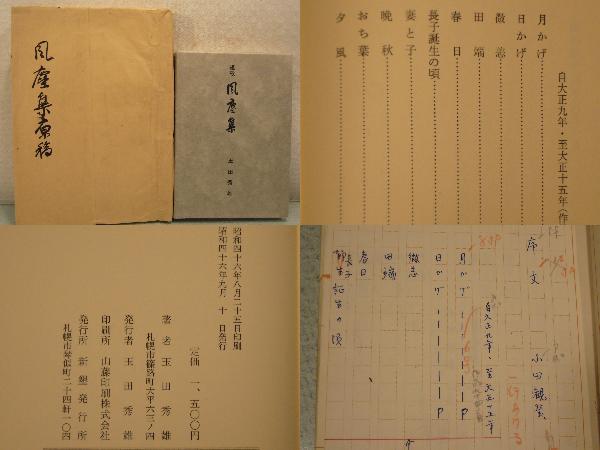 風塵集原稿
歌集
風塵集
玉田秀雄
自大正九年・至大正十五年(作
月かげ
日かげ
微恙
田端
春日
長子誕生の頃
妻と子
晩秋
おち葉
夕風
昭和四十六年八月二十五日印刷
昭和四十六年九月十日発行
定価 一、五〇〇円
著者 玉田秀雄
札幌市篠路町太平六三ノ四
発行者 玉田秀雄
印刷所 山藤印刷株式会社
発行所 新墾発行所
札幌市琴似町二十四軒一〇四
序文 小田観螢
一行あける
自大正九年、至大正十五年
月かげ P
日かげ P
微恙
田端
春日
長子
誕生の頃